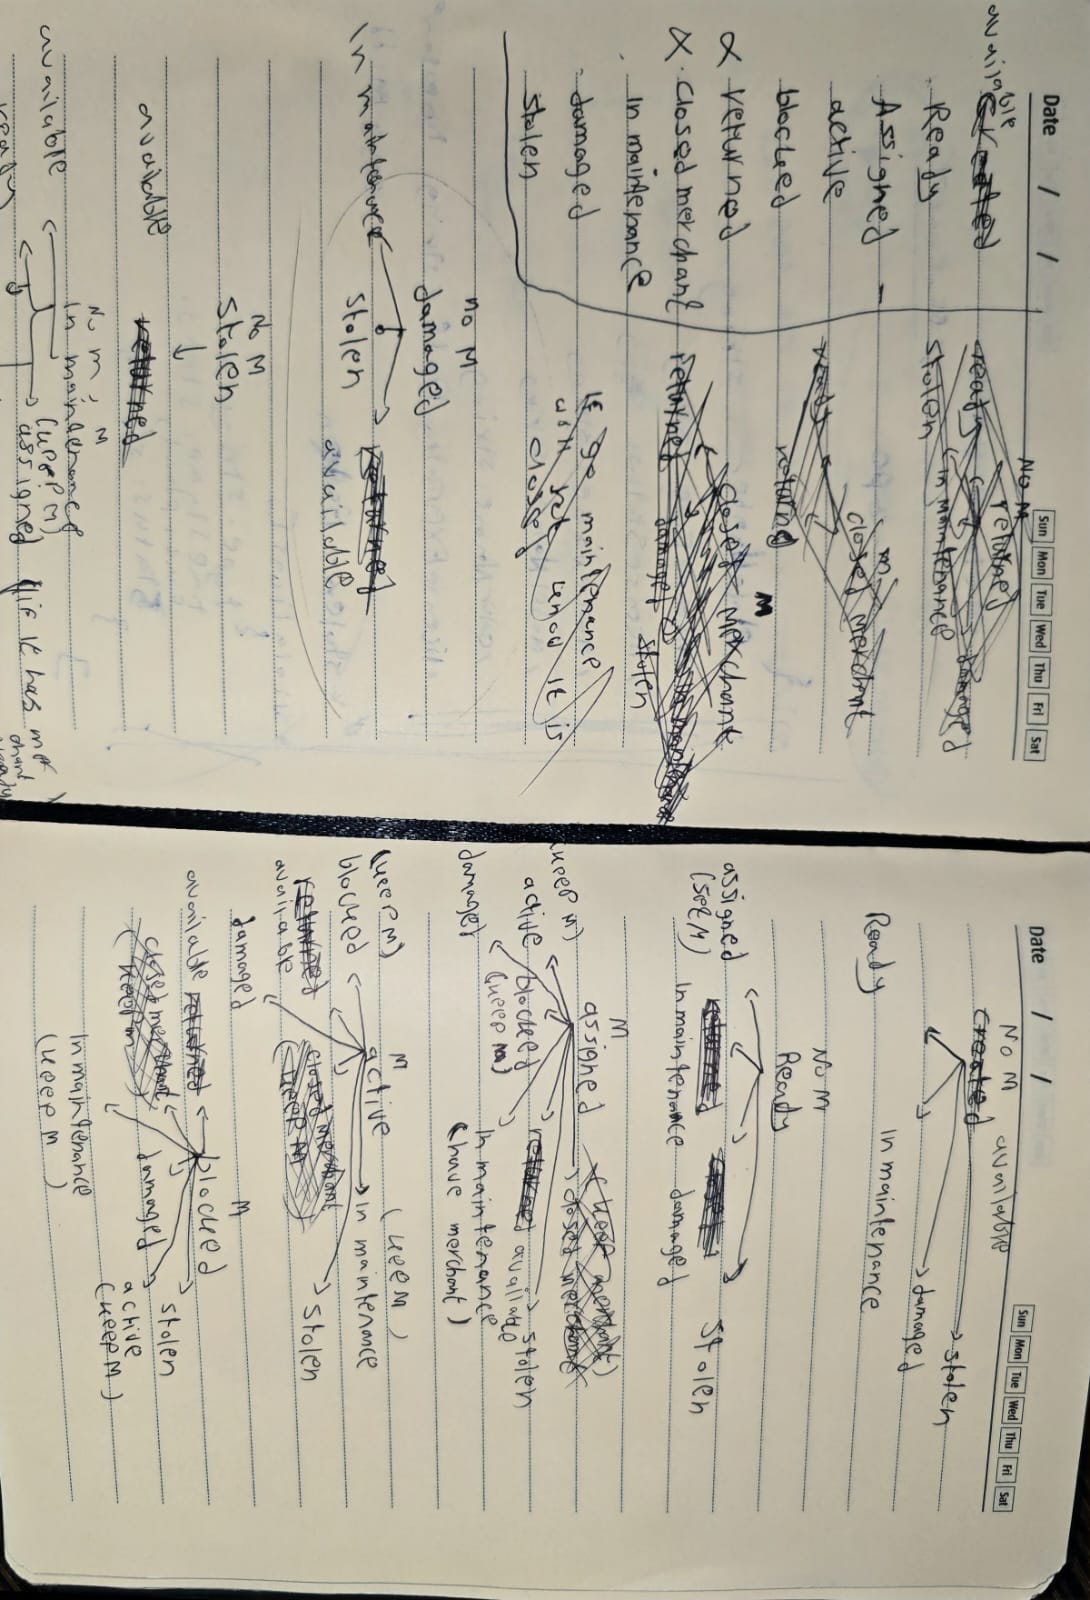 Date / /
Sun Mon Tue Wed Thu Fri Sat
available
created
Ready
Assigned -
active
blocked
∝ returned
∝ closed merchant
In maintenance
damaged
stolen
No M
returned
ready
damaged
stolen
in maintenance
m
closed merchant
ready
returned
M
closed merchant
returned
damaged
in maintenance
stolen
IF go maintenance
know it is
closed
no M
damaged
In maintenance
stolen
returned
available
No M
stolen
available
returned
No m , M
In maintenance
available
(keep M)
assigned (if it has mer
chant
ready
Date / /
Sun Mon Tue Wed Thu Fri Sat
No M
available
created
stolen
damaged
In maintenance
Ready
No M
Ready
assigned
(set M)
returned
closed
stolen
In maintenance
damaged
M
assigned
(keep merchant)
closed merchant
(keep M)
active
blocked
(keep m)
returned
available
stolen
damaged
In maintenance
(have merchant)
M
active
(keep M)
blocked
(keep M)
In maintenance
returned
available
closed merchant
(keep M)
stolen
damaged
M
blocked
available returned
closed merchant
(keep m)
damaged
stolen
active
(keep M)
In maintenance
(keep M)